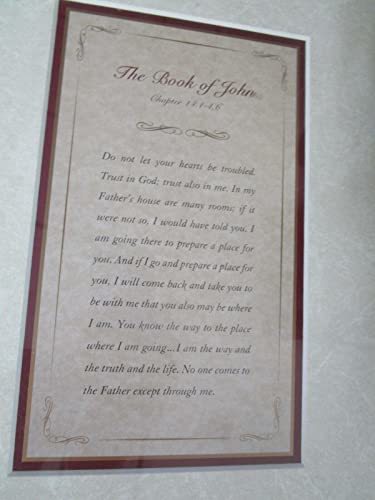 The Book of John
Chapter 14:1-4,6
Do not let your hearts be troubled.
Trust in God; trust also in me. In my
Father's house are many rooms; if it
were not so, I would have told you. I
am going there to prepare a place for
you. And if I go and prepare a place for
you, I will come back and take you to
be with me that you also may be where
I am. You know the way to the place
where I am going...I am the way and
the truth and the life. No one comes to
the Father except through me.